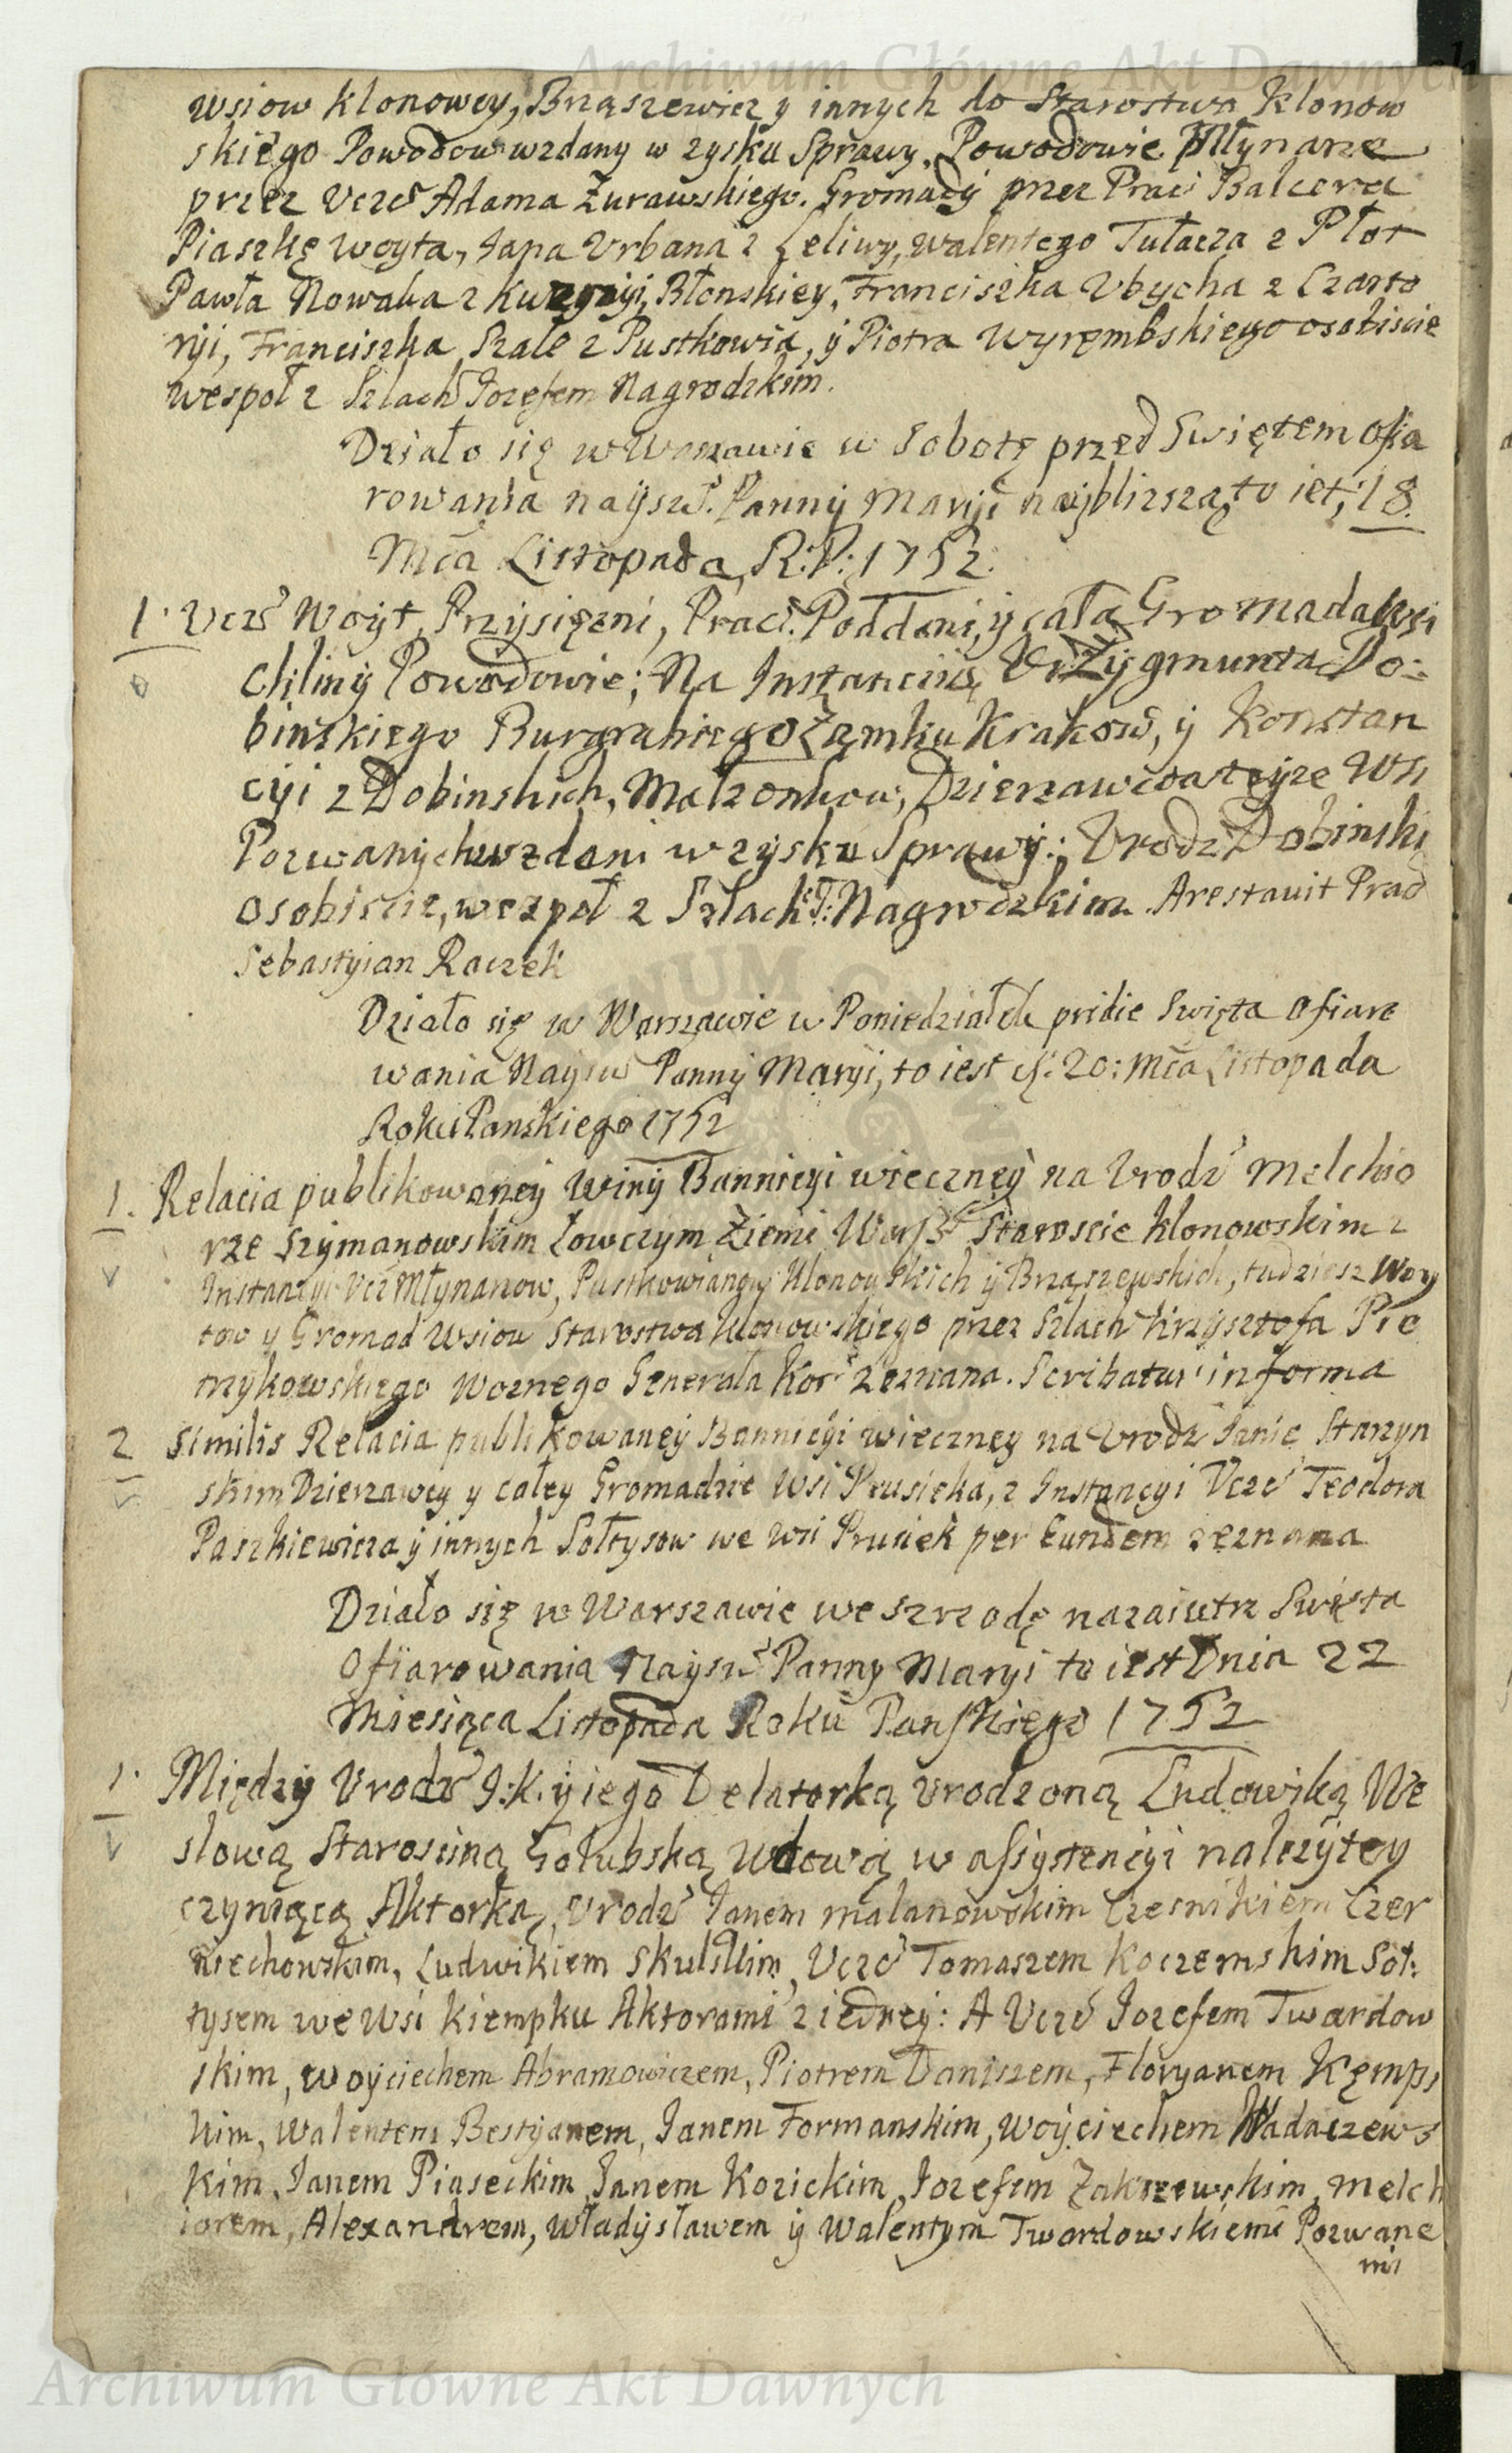 Archiwum Główne Akt Dawnych
wsiow Klonowey, Brąszewicz y innych do Starostwa Klonow
skiego Powodow wzdany w zysku Sprawy. Powodowie Młynarze
przez Uczć Adama Zurawskiego. Gromady przez Prac Balcera
Piaszkę Woyta, Jana Urbana z Leliwy, Walentego Tułacza z
Pawła Nowaka z Błonskiey, Franciszka Ubycha z Czarto
ryi, Franciszka Szale z Pustkowia, y Piotra Wyrembskiego osobiscie
wespoł z Szlach Jozefem Nagrodzkim.
Działo się w Warszawie w Sobotę przed Swiętem Ofia
rowania nayszw. Panny Maryi naybliszszą to iet, 18.
Mca Listopada, R: P: 1752.
1. Ucz Woyt, Przysięzni, Prac. Poddani, y cała Gromada Wsi
Chliny Powodowie; Na Instanciią Ur Zygmunta Do=
binskiego Burgrabiego Zamku Krakow, y Konstan
cyi z Dobinskich, Małzonkow, Dzierzawcow teyze Wsi
Pozwanych wzdani w zysku Sprawy.; Urodz Dobinski
osobiscie, wespoł z Szlach J: Nagrodzkim. Arestavit Prac
Sebastyian Raczek
Działo się w Warszawie w Poniedziałek pridie Swięta Ofiaro
wania Nayszw Panny Maryi, to iest d: 20: Mca Listopada
Roku Panskiego 1752
1. Relacia publikowaney Winy Bannicyi wieczney na Urodz Melchio
rze Szymanowskim Łowczym Ziemi Warsz Staroscie Klonowskim z
Instancyi Ucz Młynarzow, Pustkowianow Klonowskich y Brąszewskich, tudziesz Woy
tow y Gromad Wsiow Starostwa Klonowskiego przez Szlach Krzysztofa Pie
trzykowskiego Woznego Generała Kor zeznana. Scribatur in forma
2 Similis Relacia publikowaney Bannicyi wieczney na Urodz Janie Starzyn
skim Dzierzawcy y całey Gromadzie Wsi Prusieka, z Instancyi Uczć Teodora
Paszkiewicza y innych Sołtysow we Wsi Prusiek per Eundem zeznana
Działo się w Warszawie we Szrzodę nazaiutrz Swięta
Ofiarowania Nayszw Panny Maryi to iest Dnia 22
Miesiąca Listopada Roku Panskiego 1752
1. Między Urodz J: K. y iego Delatorką Urodzoną Ludowiką We
slową Starosciną Gołubską Wdową w assystencyi nalezytey
czyniącą Aktorką, Urodz Janem Malanowskim Czesnikiem Czer
niechowskim, Ludwikiem Skulskim, Uczć Tomaszem Koczemskim Soł:
tysem we Wsi Kiempku Aktorami z iedney: A Uczć Jozefem Twardow
skim, Woyciechem Abramowiczem, Piotrem Daniszem, Floryanem Kęmps
kim, Walentem Bestyanem, Janem Formanskim, Woyciechem Wadaczews
kim, Janem Piaseckim, Janem Kozickim, Jozefem Zakrzewskim, Melch
iorem, Alexandrem, Władysławem y Walentym Twardowskiemi Pozwane
mi
Archiwum Główne Akt Dawnych